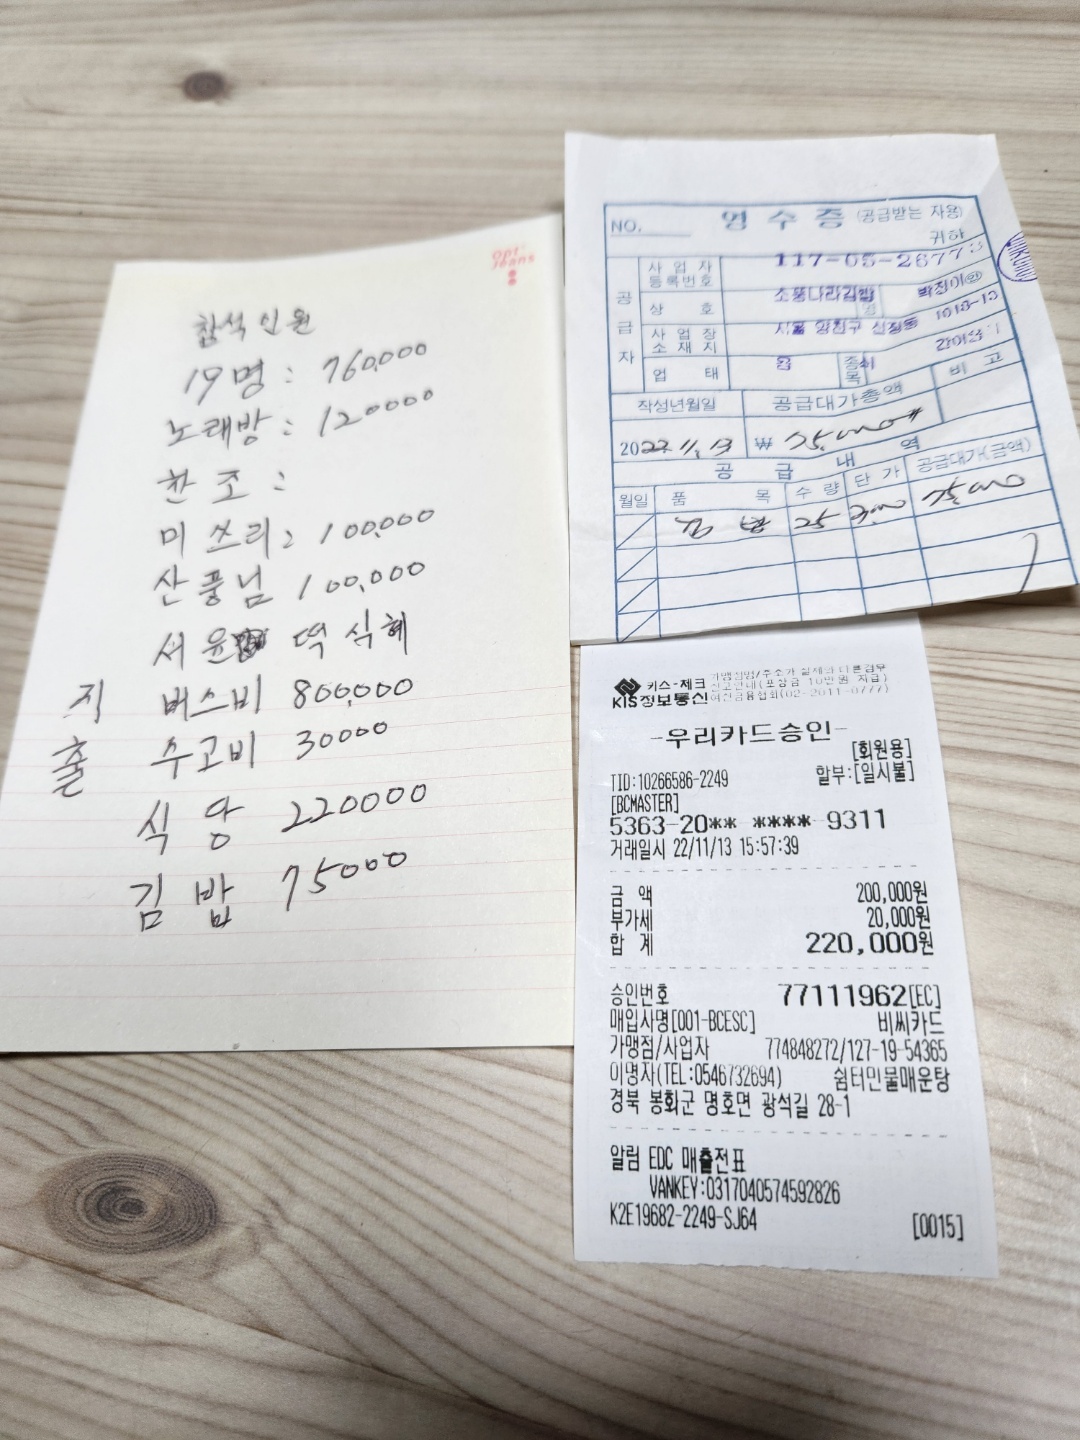 opt'
jeans
참석인원
19명 : 760,000
노래방 : 120000
한조 :
미쓰리 : 100,000
산풍님 100,000
서윤 떡 식혜
지출
버스비 800,000
수고비 30000
식당 220000
김밥 75000
NO.
영수증 (공급받는 자용)
귀하
공급자
사업자등록번호 117-05-26773
상호 소풍나라김밥 명 박정이 ㊞
사업장소재지 서울 양천구 신정동 1018-13
업태 종목
작성년월일 공급대가총액 비고
2022. 11. 13 ₩ 75,000#
공급내역
월일 품목 수량 단가 공급대가(금액)
김밥 25 75000
키스-제크
KIS정보통신
가맹점명/주소가 실제와 다른경우
신고안내(포상금 10만원 지급)
여신금융협회(02-2011-0777)
-우리카드승인-
[회원용]
TID:10266586-2249 할부:[일시불]
[BCMASTER]
5363-20** **** 9311
거래일시 22/11/13 15:57:39
금액 200,000원
부가세 20,000원
합계 220,000원
승인번호 77111962[EC]
매입사명[001-BCESC] 비씨카드
가맹점/사업자 774848272/127-19-54365
이명자(TEL:0546732694) 쉼터민물매운탕
경북 봉화군 명호면 광석길 28-1
알림 EDC 매출전표
VANKEY:0317040574592826
K2E19682-2249-SJ64 [0015]